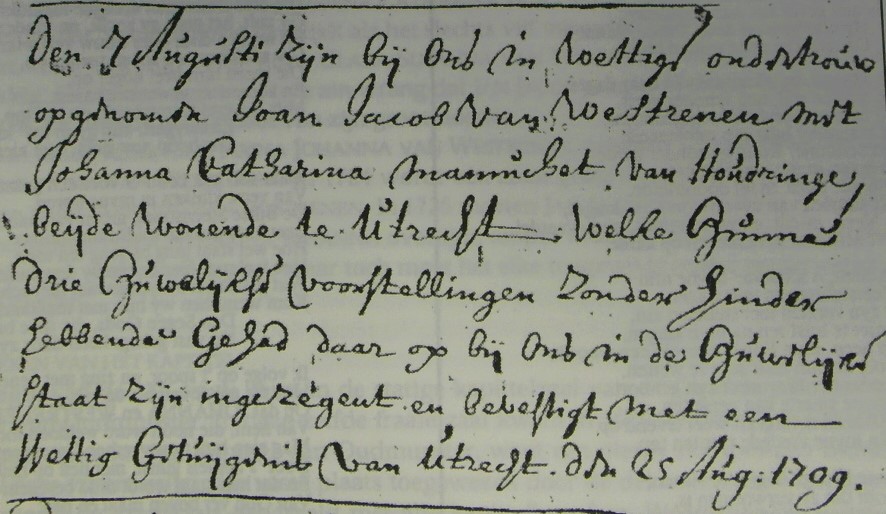 Den 7 Augusti zijn bij Ons in Wettige ondertrouw
opgenomen Joan Jacob Van Westrenen met
Johanna Catharina Mamuchet van Houdringe,
beijde wonende te Utrecht welke Hunne
drie Huwelijkse voorstellingen zonder hinder
hebbende Gehad daar op bij Ons in de Huwelijke
staat zijn ingezegent en bevestigt met een
Wettig Getuijgenis van Utrecht. den 25 Aug: 1709.